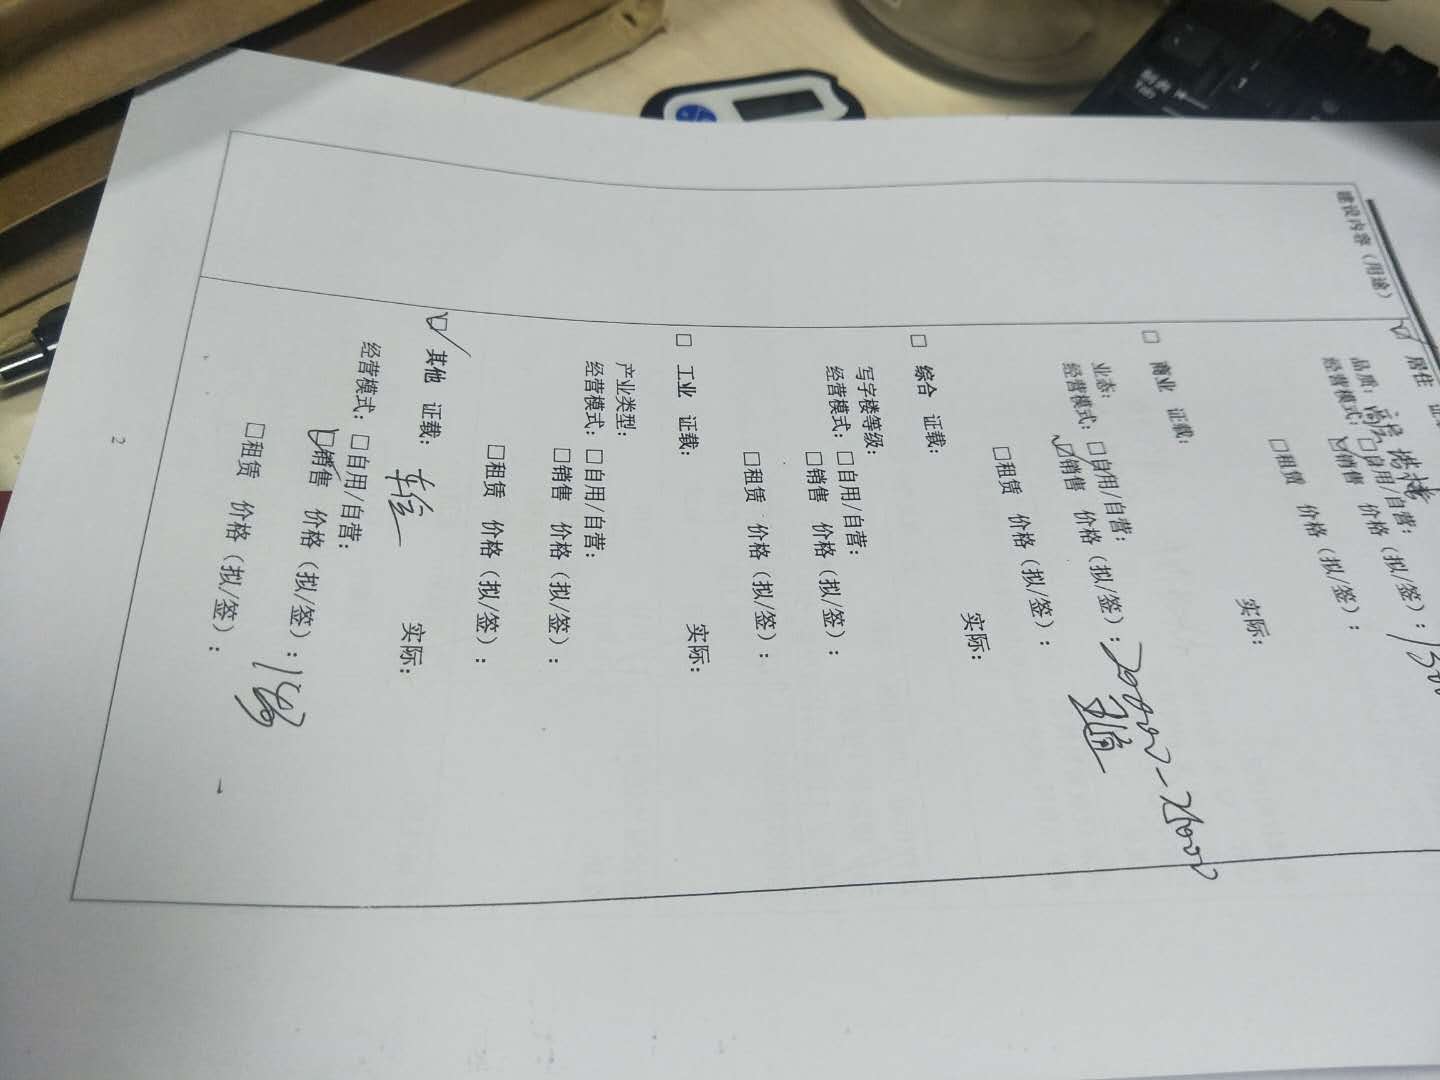 建设内容（用途）
居住
品质：高层塔楼
经营模式：□自用/自营：
销售 价格（拟/签）：
□租赁 价格（拟/签）：
实际：
□ 商业 证载：
业态：
经营模式：□自用/自营：
销售 价格（拟/签）：20000-25000
□租赁 价格（拟/签）：
实际：
□ 综合 证载：
写字楼等级：
经营模式：□自用/自营：
□销售 价格（拟/签）：
□租赁 价格（拟/签）：
实际：
□ 工业 证载：
产业类型：
经营模式：□自用/自营：
□销售 价格（拟/签）：
□租赁 价格（拟/签）：
实际：
其他 证载：车位
经营模式：□自用/自营：
销售 价格（拟/签）：
□租赁 价格（拟/签）：
2